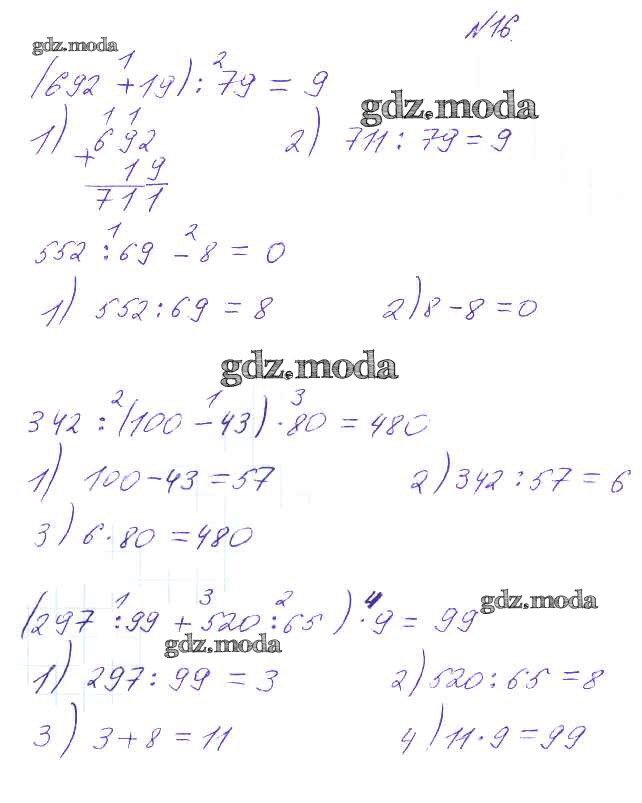 №16.
gdz.moda
1 2
(692 + 19) : 79 = 9
gdz.moda
1 1
1) 692 2) 711 : 79 = 9
+ 19
711
1 2
552 : 69 - 8 = 0
1) 552 : 69 = 8 2) 8 - 8 = 0
gdz.moda
2 1 3
342 : (100 - 43) · 80 = 480
1) 100 - 43 = 57 2) 342 : 57 = 6
3) 6 · 80 = 480
1 3 2 4
gdz.moda
(297 : 99 + 520 : 65) · 9 = 99
gdz.moda
1) 297 : 99 = 3 2) 520 : 65 = 8
3) 3 + 8 = 11 4) 11 · 9 = 99